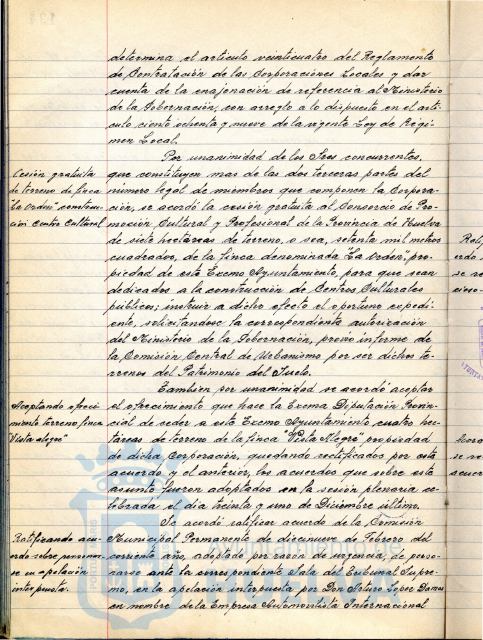 determina el artículo veinticuatro del Reglamento
de Contratación de las Corporaciones Locales y dar
cuenta de la enajenación de referencia al Ministerio
de la Gobernación, con arreglo a lo dispuesto en el artí-
culo ciento ochenta y nueve de la vigente Ley de Régi-
men Local.
Por unanimidad de los Sres concurrentes,
Cesión gratuita
que constituyen mas de las dos terceras partes del
de terreno de finca
número legal de miembros que componen la Corpora-
"La Orden" construc-
ción, se acordó la cesión gratuita al Consorcio de Pro-
ción centro Cultural
moción Cultural y Profesional de la Provincia de Huelva
de siete hectareas de terreno, o sea, setenta mil metros
cuadrados, de la finca denominada "La Orden", pro-
piedad de este Excmo Ayuntamiento, para que sean
dedicados a la construcción de Centros Culturales
públicos; instruir a dicho efecto el oportuno expedi-
ente, solicitandose la correspondiente autorización
del Ministerio de la Gobernación, previo informe de
la Comisión Central de Urbanismo por ser dichos te-
rrenos del Patrimonio del Suelo.
Tambien por unanimidad se acordó aceptar
Aceptando ofreci-
el ofrecimiento que hace la Excma Diputación Provin-
miento terreno finca
cial de ceder a este Excmo Ayuntamiento cuatro hec-
"Vista alegre"
táreas de terreno de la finca "Vista Alegre" propiedad
de dicha Corporación, quedando rectificados por este
acuerdo y el anterior, los acuerdos que sobre este
asunto fueron adoptados en la sesión plenaria ce-
lebrada el dia treinta y uno de Diciembre último.
Se acordó ratificar acuerdo de la Comisión
Ratificando acu-
Municipal Permanente de diecinueve de Febrero del
erdo sobre personar-
corriente año, adoptado por razón de urgencia, de perso-
se en apelación
narse ante la correspondiente Sala del Tribunal Supre-
interpuesta.
mo, en la apelación interpuesta por Don Arturo Lopez Damas
en nombre de la Empresa Automovilista Internacional